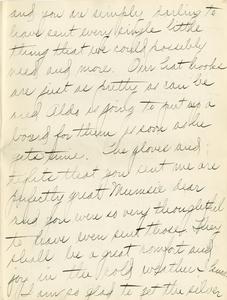 and you are simply darling to
have sent every single little
thing that we could possibly
need and more. Our hat boxes
are just as pretty as can be
and Aldo is going to put up a
board for them as soon as he
gets time. The gloves and
that you sent me are
perfectly great Mumsie dear
and you were so very thoughtful
to have even sent those. They
shall be a great comfort and
joy in the cold weather
I am so glad to get the silver